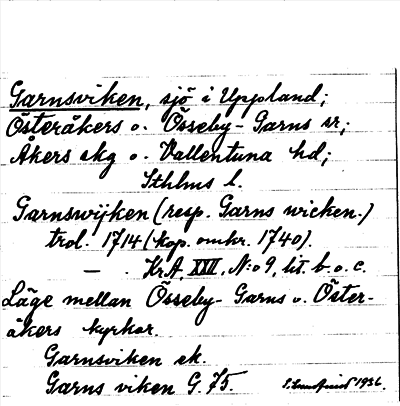 Garnsviken, sjö i Uppland;
Österåkers o. Össeby-Garns sr;
Åkers skg o. Vallentuna hd;
Sthlms l.
Garnswijken (resp. Garns wicken.)
trol. 1714 (kop. omkr. 1740).
— . Kr.A. XXII, N:o 9, lit. b. o. c.
Läge mellan Össeby-Garns o. Öster-
åkers kyrkor.
Garnsviken ek.
Garns viken G. 75. 1936.